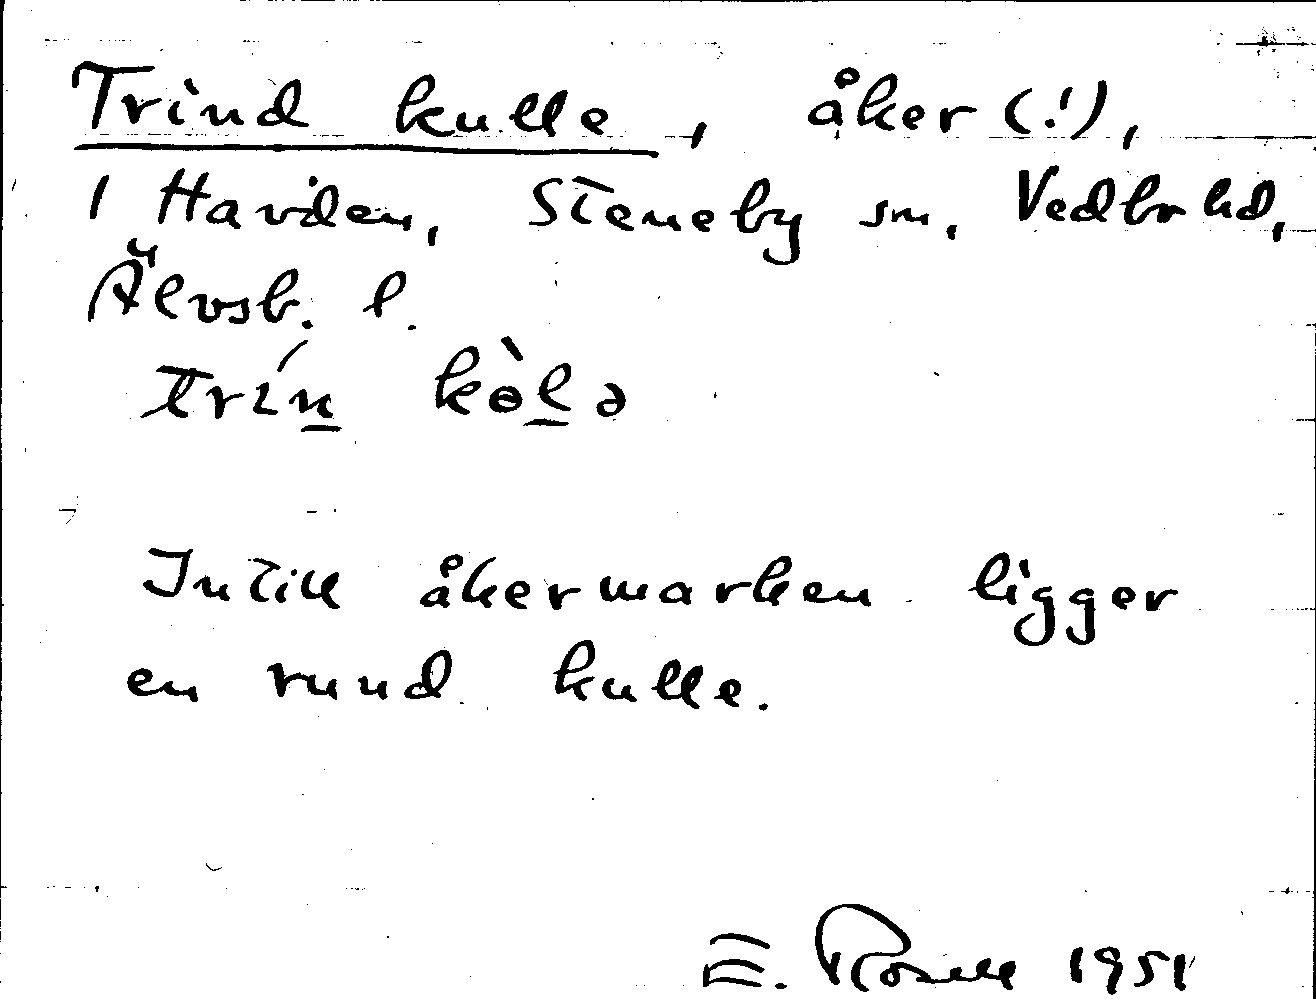 Trind kulle, åker (!),
1 Havden, Steneby sn, Vedbo hd,
Älvsb. l.
trín kɵ̀lə
Intill åkermarken ligger
en rund kulle.
E. Rosell 1951